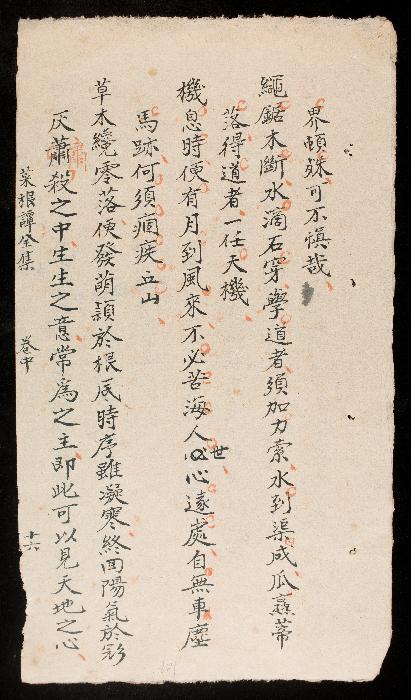 界頓殊可不慎哉
繩鋸木斷水滴石穿學道者須加力索水到渠成瓜熟蒂
落得道者一任天機
機息時便有月到風來不必苦海人世心遠處自無車塵
馬跡何須痼疾丘山
草木纔零落便發萌穎於根底時序雖凝寒終回陽氣於
灰肅殺之中生生之意常為之主即此可以見天地之心
菜根譚全集 卷中 十六